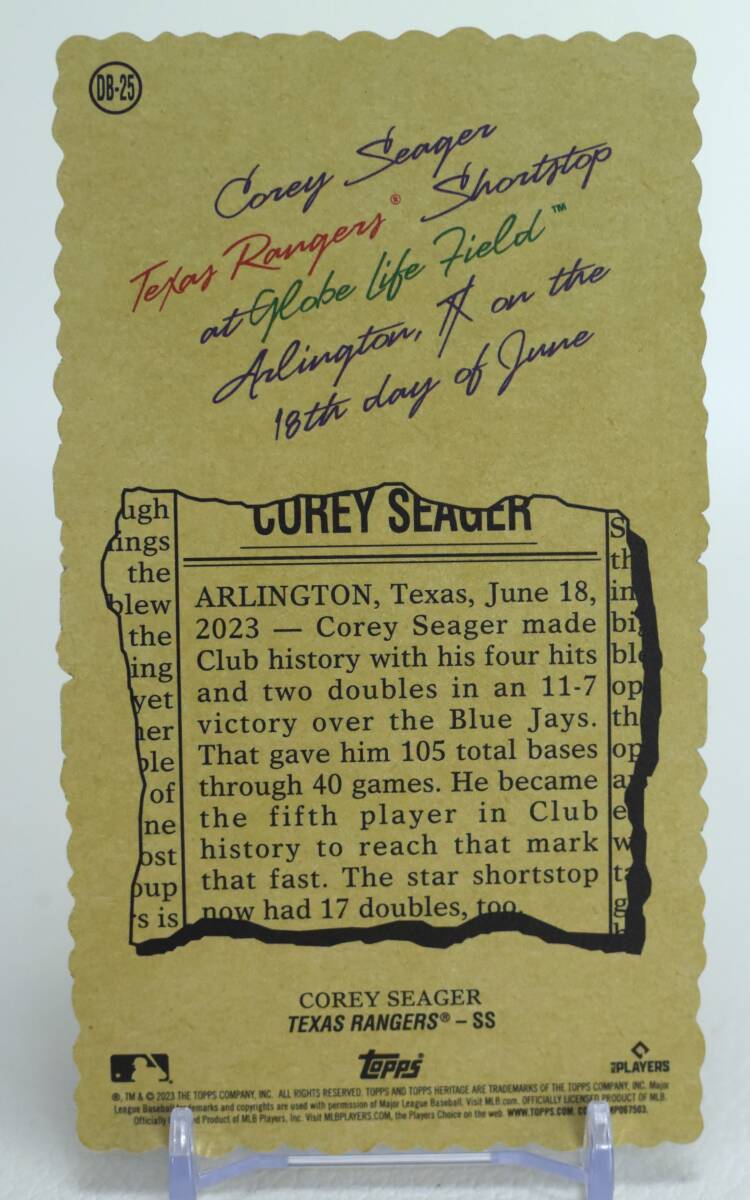 DB-25
Corey Seager
Texas Rangers® Shortstop
at Globe Life Field™
Arlington, TX on the
18th day of June
COREY SEAGER
ARLINGTON, Texas, June 18,
2023 — Corey Seager made
Club history with his four hits
and two doubles in an 11-7
victory over the Blue Jays.
That gave him 105 total bases
through 40 games. He became
the fifth player in Club
history to reach that mark
that fast. The star shortstop
now had 17 doubles, too.
ugh
ings
the
blew
the
ing
yet
her
ple
of
ne
ost
oup
s is
S
th
in
big
ble
op
th
op
a
e
w
ta
g
COREY SEAGER
TEXAS RANGERS® – SS
topps
MLBPLAYERS
®, TM & © 2023 THE TOPPS COMPANY, INC. ALL RIGHTS RESERVED. TOPPS AND TOPPS HERITAGE ARE TRADEMARKS OF THE TOPPS COMPANY, INC. Major
League Baseball trademarks and copyrights are used with permission of Major League Baseball. Visit MLB.com. OFFICIALLY LICENSED PRODUCT OF MLB
Officially Product of MLB Players, Inc. Visit MLBPLAYERS.COM, the Players Choice on the web. WWW.TOPPS.COM.